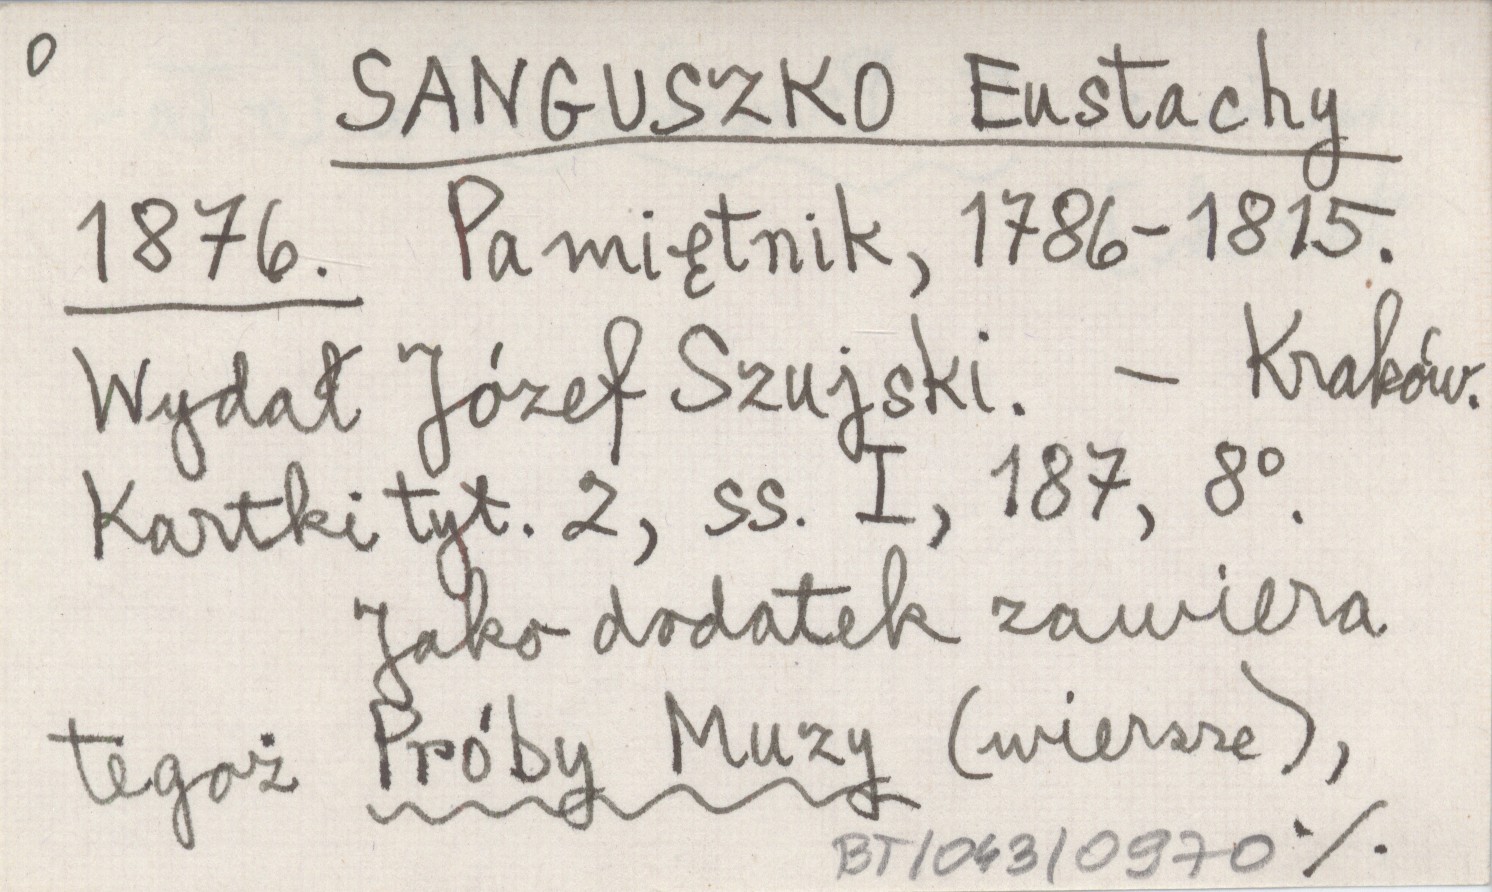 0
SANGUSZKO Eustachy
1876. Pamiętnik, 1786-1815.
Wydał Józef Szujski. - Kraków.
Kartki tyt. 2, ss. I, 187, 8°.
Jako dodatek zawiera
tegoż Próby Muzy (wiersze),
./.
BT/043/0970